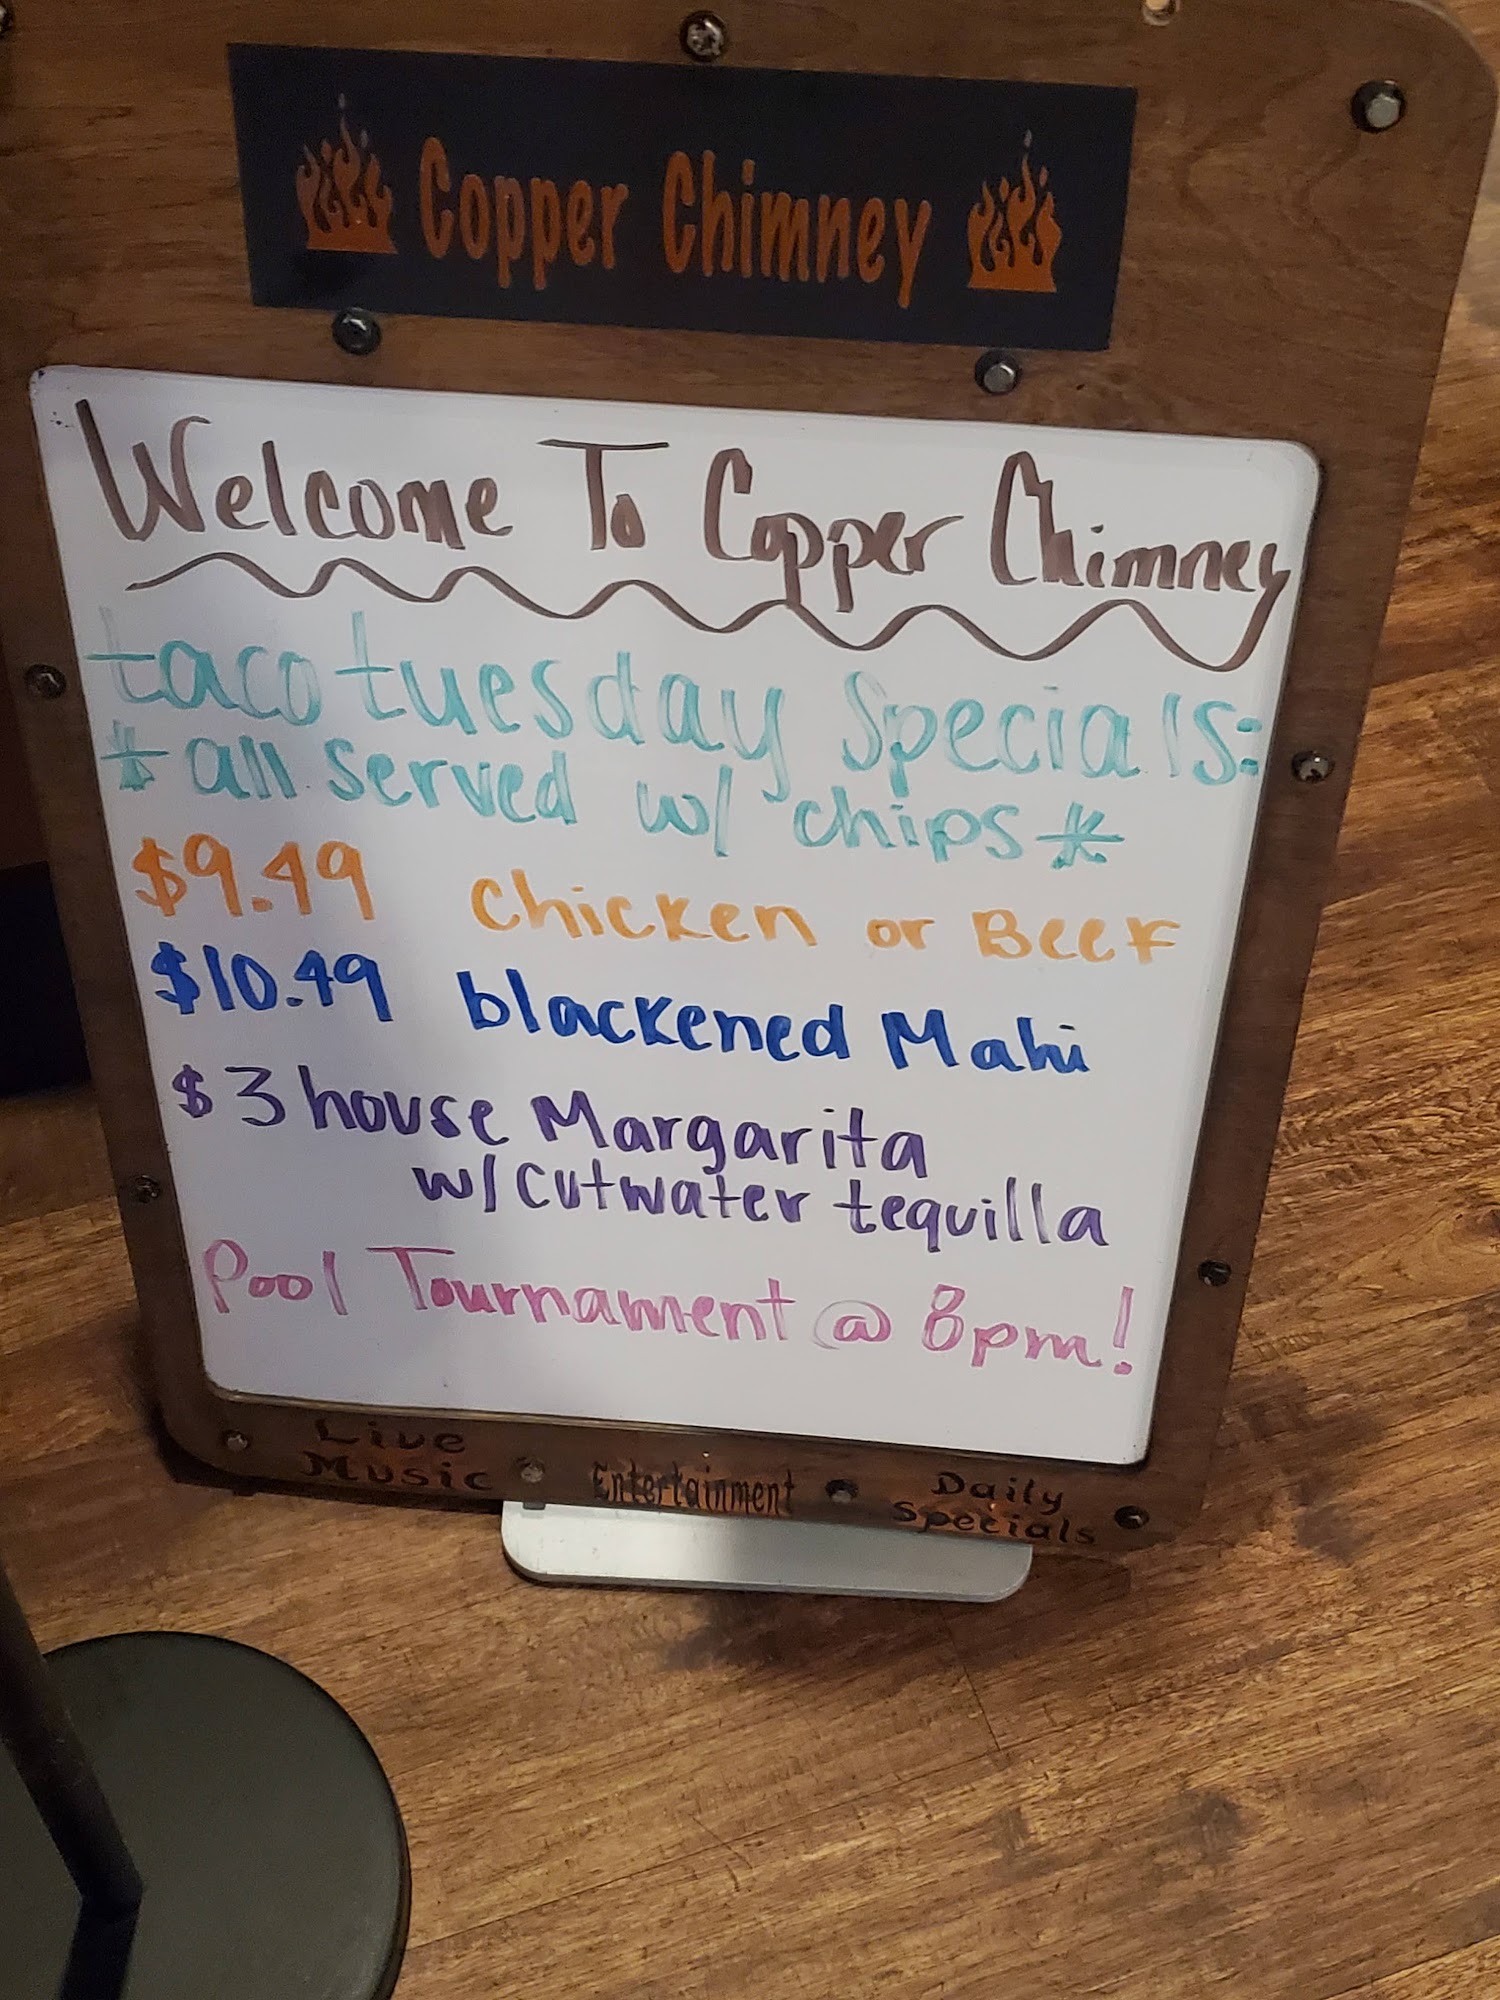 Copper Chimney
Welcome To Copper Chimney
taco tuesday specials:
*all served w/ chips*
$9.49 chicken or Beef
$10.49 blackened Mahi
$3 house Margarita
w/ cutwater tequilla
Pool Tournament @ 8pm!
Live Music
Entertainment
Daily Specials